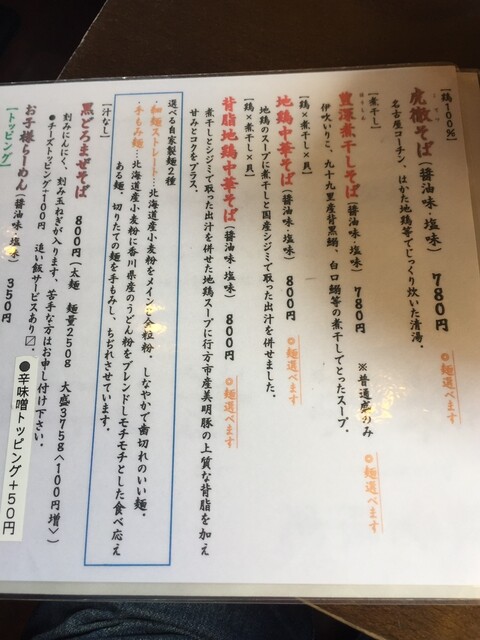 【鶏100%】
虎徹そば（醤油味・塩味） 780円 ◎麺選べます
名古屋コーチン、はかた地鶏等でじっくり炊いた清湯。
【煮干し】
豊潤煮干しそば（醤油味・塩味） 780円 ※普通盛のみ ◎麺選べます
伊吹いりこ、九十九里産背黒鰯、白口鰯等の煮干しでとったスープ。
【鶏×煮干し×貝】
地鶏中華そば（醤油味・塩味） 800円 ◎麺選べます
地鶏のスープに煮干しと国産シジミで取った出汁を併せました。
【鶏×煮干し×貝】
背脂地鶏中華そば（醤油味・塩味） 800円 ◎麺選べます
煮干しとシジミで取った出汁を併せた地鶏スープに行方市産美明豚の上質な背脂を加え
甘みとコクをプラス。
選べる自家製麺2種
・細麺ストレート…北海道産小麦粉をメインに全粒粉。しなやかで歯切れのいい麺。
・手もみ麺…北海道産小麦粉に香川県産のうどん粉をブレンドしモチモチとした食べ応え
ある麺。切りたての麺を手もみし、ちぢれさせています。
【汁なし】
黒どろまぜそば 800円（太麺 麺量250g 大盛375g〈100円増〉）
刻みにんにく、刻み玉ねぎが入ります、苦手な方はお申し付け下さい。
●チーズトッピング+100円 追い飯サービスあり〼。
お子様らーめん（醤油味・塩味） 350円
【トッピング】
●辛味噌トッピング+50円